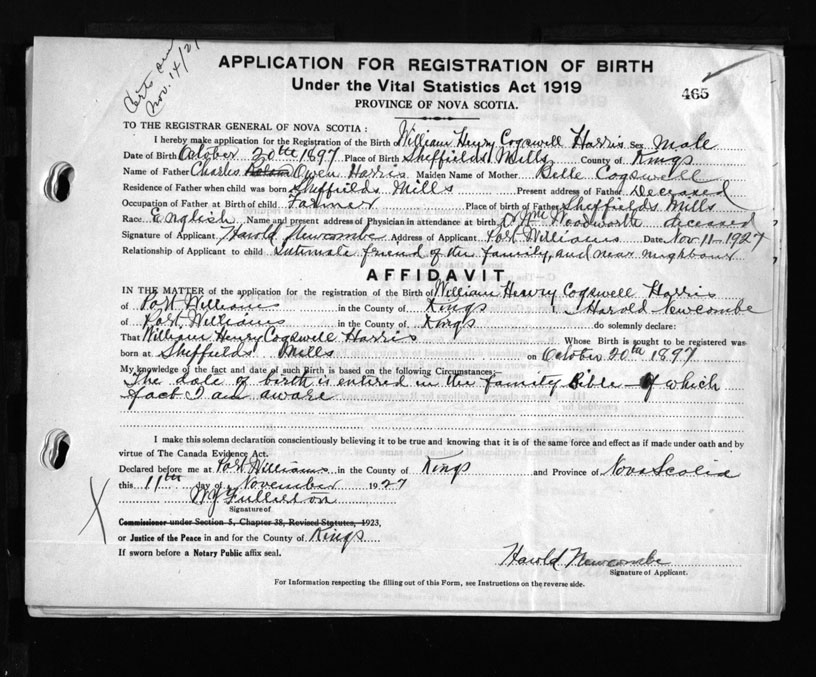 Certs sent
Nov. 14/27
APPLICATION FOR REGISTRATION OF BIRTH
Under the Vital Statistics Act 1919
465
PROVINCE OF NOVA SCOTIA.
TO THE REGISTRAR GENERAL OF NOVA SCOTIA:
I hereby make application for the Registration of the Birth of William Henry Cogswell Harris Sex Male
Date of Birth October 20th 1897 Place of Birth Sheffields Mills County of Kings
Name of Father Charles Owen Harris Maiden Name of Mother Belle Cogswell
Residence of Father when child was born Sheffields Mills Present address of Father Deceased
Occupation of Father at Birth of child Farmer Place of birth of Father Sheffields Mills
Race English Name and present address of Physician in attendance at birth Dr Wm Woodworth deceased
Signature of Applicant Harold Newcombe Address of Applicant Port Williams Date Nov 11-1927
Relationship of Applicant to child Intimate friend of the family, and near neighbour
AFFIDAVIT
IN THE MATTER of the application for the registration of the Birth of William Henry Cogswell Harris
of Port Williams in the County of Kings I Harold Newcombe
of Port Williams in the County of Kings do solemnly declare:
That William Henry Cogswell Harris Whose Birth is sought to be registered was
born at Sheffields Mills on October 20th 1897
My knowledge of the fact and date of such Birth is based on the following Circumstances:—
The date of birth is entered in the family Bible - of which
fact I am aware
I make this solemn declaration conscientiously believing it to be true and knowing that it is of the same force and effect as if made under oath and by
virtue of The Canada Evidence Act.
Declared before me at Port Williams in the County of Kings and Province of Nova Scotia
this 11th day of November 1927
Signature of
Commissioner under Section 5, Chapter 38, Revised Statutes, 1923,
or Justice of the Peace in and for the County of Kings
If sworn before a Notary Public affix seal.
Harold Newcombe
Signature of Applicant.
For Information respecting the filling out of this Form, see Instructions on the reverse side.